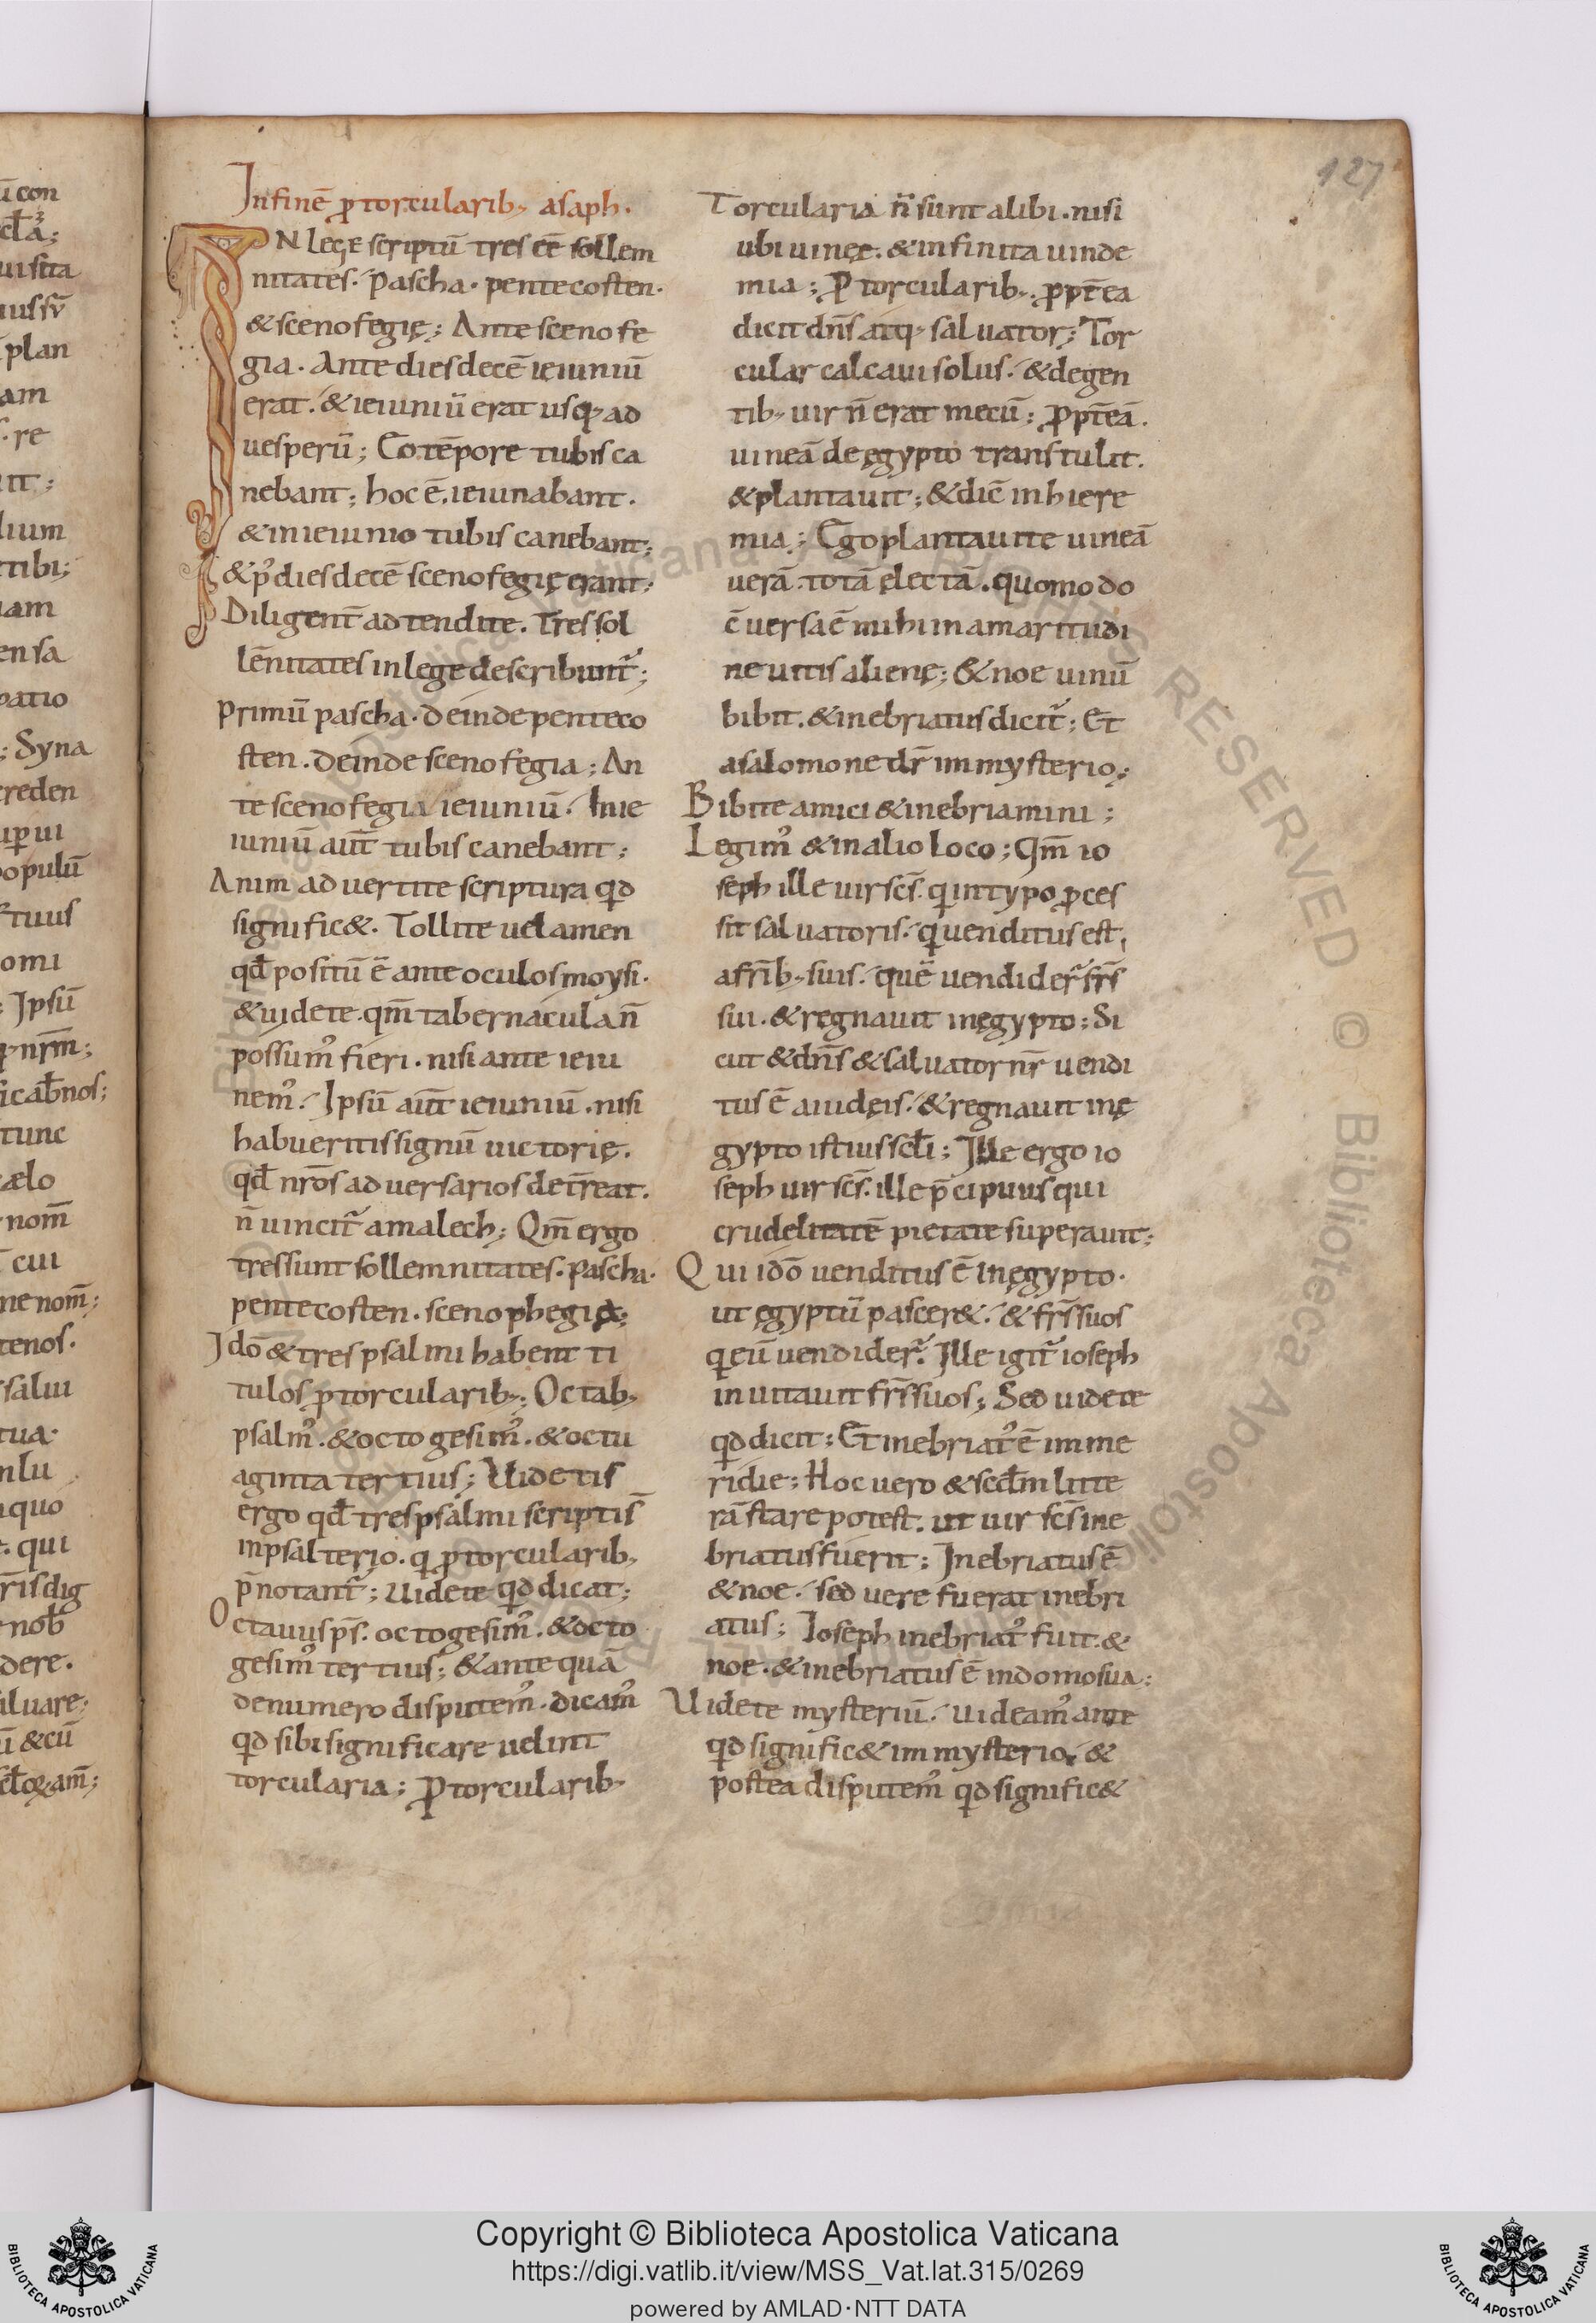 127
Infinē ꝓtorcularib; asaph.
IN lege scriptū tres eē sollem
nitates. Pascha. pentecosten.
& scenofegię; Ante scenofe
gia. Ante dies decē ieiuniū
erat. & ieiuniū erat usq; ad
uesperū; Eo tēpore tubis ca
nebant; hoc ē, ieiunabant.
& in ieiunio tubis canebant;
& p᾽ dies decē scenofegię erant;
Diligent̄ adtendite. Tres sol
lēnitates in lege describunt᷑;
Primū pascha. deinde penteco
sten. deinde scenofegia; An
te scenofegia ieiuniū. In ie
iuniū aūt tubis canebant;
Anim aduertite scriptura qd
signific&. Tollite uelamen
qđ positū ē ante oculos moysi.
& uidete. qm̄ tabernacula n̄
possum᾽ fieri. nisi ante ieiu
nem᾽. Ipsū aūt ieiuniū. nisi
habueritis signū uictorię.
qđ nr̄os aduersarios det̄reat.
n̄ uincit᷑ amalech; Qm̄ ergo
tres sunt sollemnitates. Pascha.
pentecosten. scenophegię;
Idō & tres psalmi habent ti
tulos ꝓtorcularib;. Octab;
psalm᾽. & octogesim᾽. & octu
aginta tertius; Uidetis
ergo qđ tres psalmi scripti s̄
in psalterio. q ꝓtorcularib;
p̄notant᷑; Uidete qd dicat;
Octauus ps̄. octogesim᾽. & octo
gesim᾽ tertius; & ante quā
de numero disputem᾽. dicam᾽
qd sibi significare uelint
torcularia; ꝓtorcularib;
Torcularia n̄ sunt alibi. nisi
ubi uineę. & infinita uinde
mia; ꝓ torcularib;. ꝓpt̄ea
dicit dn̄s atq; saluator; Tor
cular calcaui solus. & de gen
tib; uir n̄ erat mecū; ꝓpt̄eā.
uineā de ęgypto transtulit.
& plantauit; & dic̄ in hiere
mia; Ego plantaui te uineā
uerā. totā electā. quomodo
c̄uersa ē mihi in amaritudi
ne uitis alienę; & noe uinū
bibit. & inebriatus dicit᷑; Et
a salomone dr̄ in mysterio;
Bibite amici & inebriamini;
Legim᾽ & in alio loco; Qm̄ io
seph ille uir sc̄s. q in typo ꝓces
sit saluatoris. q uenditus est,
a fr̄ib; suis. quē uendider᷑ fr̄s
sui. & regnauit in ęgypto; Si
cut & dn̄s & saluator nr̄ uendi
tus ē a iudęis. & regnauit in ę
gypto istius scl̄i; Ille ergo io
seph uir sc̄s. ille p̄cipuus qui
crudelitatē pietate superauit;
Qui idō uenditus ē in ęgypto.
ut ęgyptū pascer&. & fr̄s suos
q eū uendider᷑. Ille igit᷑ ioseph
inuitauit fr̄s suos; Sed uidete
qd dicit; Et inebriat᾽ ē in me
ridie; Hoc uero & scđm litte
rā stare potest. ut uir sc̄s ine
briatus fuerit; Inebriatus ē
& noe. sed uere fuerat inebri
atus; Ioseph inebriat᾽ fuit. &
noe. & inebriatus ē in domo sua;
Uidete mysteriū. Uideam᾽ ante
qd signific& in mysterio. &
postea disputem᾽ qd signific&
Copyright © Biblioteca Apostolica Vaticana
https://digi.vatlib.it/view/MSS_Vat.lat.315/0269
powered by AMLAD·NTT DATA